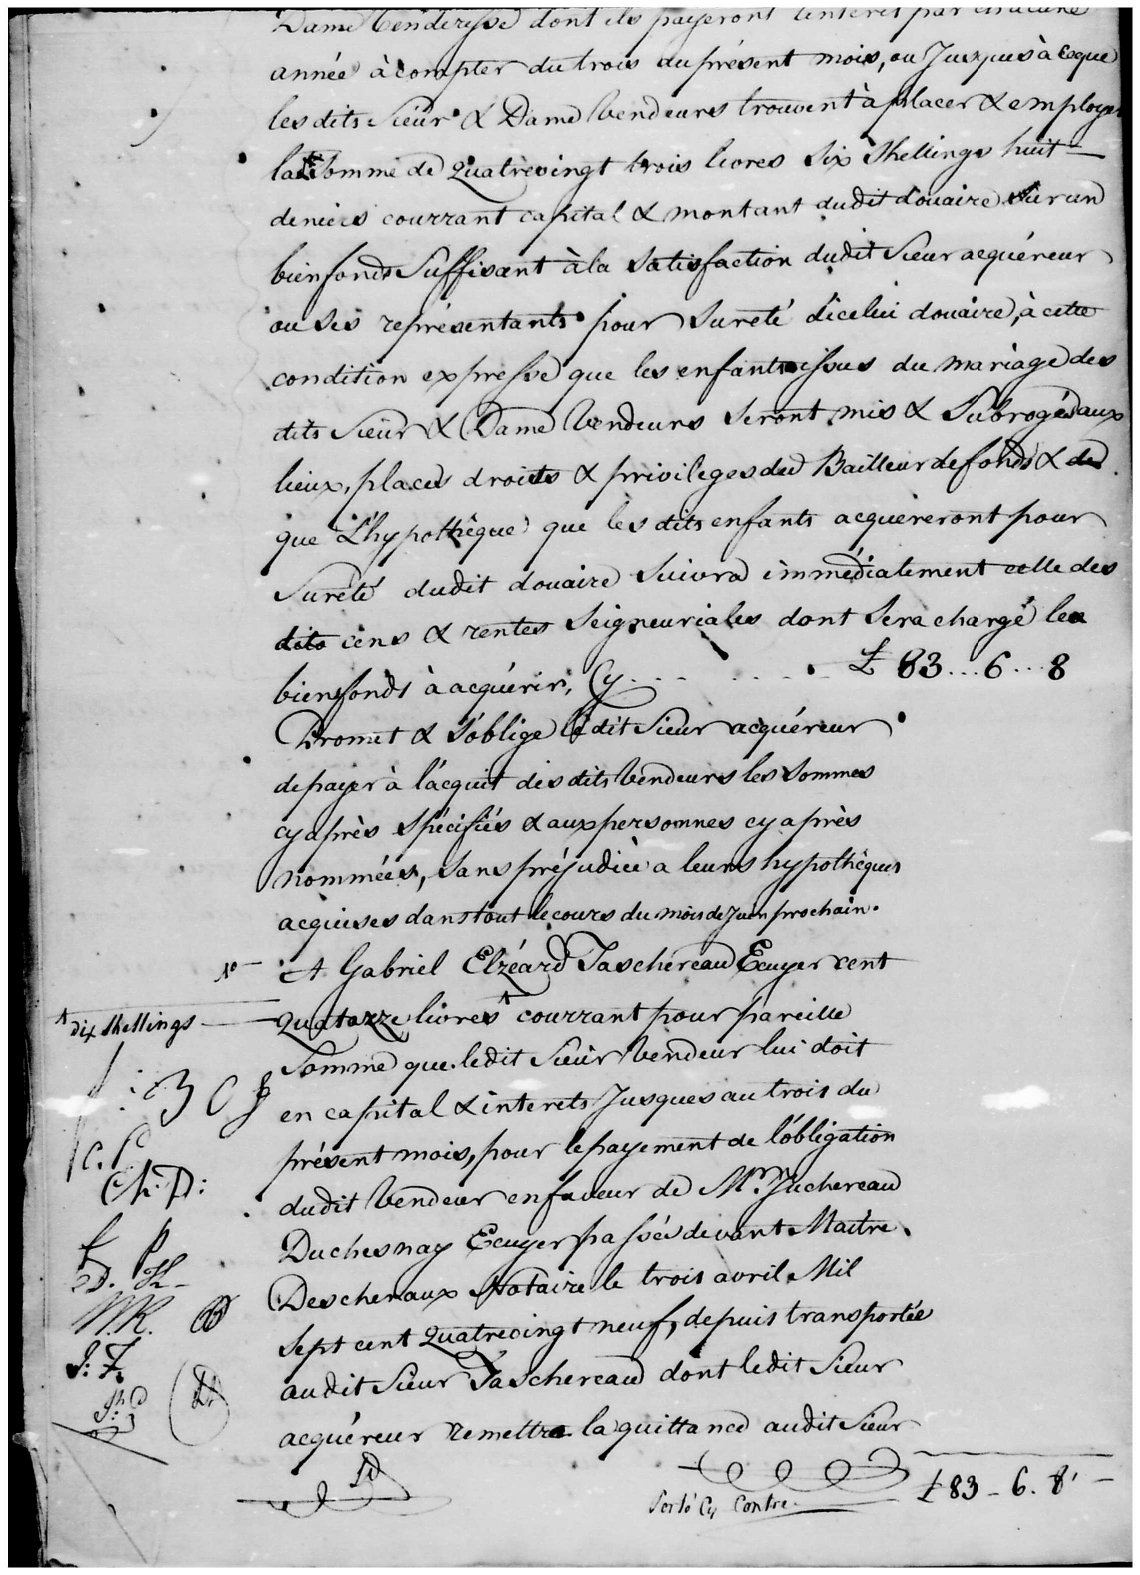 Dame Venderesse dont ils payeront l'interet par chacune
année à compter du trois du présent mois, ou Jusques à ceque
les dits Sieur & Dame Vendeurs trouvent à placer & employer
la Somme de Quatrevingt trois livres Six Shellings huit
deniers courrant capital & montant dudit douaire Sur un
bienfonds Suffisant à la Satisfaction dudit Sieur acquéreur
ou Ses représentants pour Sureté dicelui douaire, à cette
condition expresse que les enfants issus du mariage des
dits Sieur & Dame Vendeurs Seront mis & Subrogés aux
lieux, places droits & privileges des Bailleur de fonds &
que L'hypothêque que les dits enfants acquereront pour
Sureté dudit douaire Suivra immédiatement celle des
dits cens & rentes Seigneuriales dont Sera chargé les
bienfonds à acquérir, Cy . . . . . . £ 83...6...8
Promet & S'oblige ledit Sieur acquéreur
de payer à l'acquit des dits Vendeurs les Sommes
cy après Spécifiés & aux personnes cy après
nommées, Sans préjudice a leurs hypothêques
acquises dans tout le cours du mois de Juin prochain.
1º A Gabriel Elzéard Taschereau Ecuyer cent
+ dix Shellings
Quatorze livres + courrant pour pareille
Somme que ledit Sieur Vendeur lui doit
en capital & interets Jusques au trois du
présent mois, pour le payement de l'obligation
C. P.
Ch. D:
dudit Vendeur en faveur de Mr. Juchereau
Duchesnay Ecuyer passés devant Maitre
D. K.
Descheneaux Notaire le trois avril Mil
W.R.
Sept cent Quatrevingt neuf, depuis transportée
J: F.
audit Sieur Taschereau dont ledit Sieur
acquéreur remettra la quittance audit Sieur
Porté Cy Contre £ 83 - 6. 8